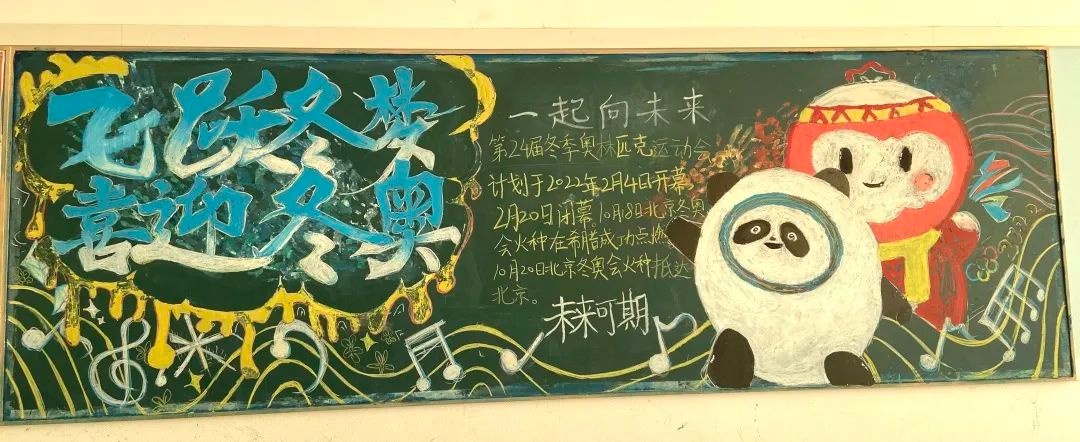 飞跃冬梦
喜迎冬奥
一起向未来
第24届冬季奥林匹克运动会
计划于2022年2月4日开幕
2月20日闭幕。10月18日北京冬奥
会火种在希腊成功点燃
10月20日北京冬奥会火种抵达
北京。
未来可期